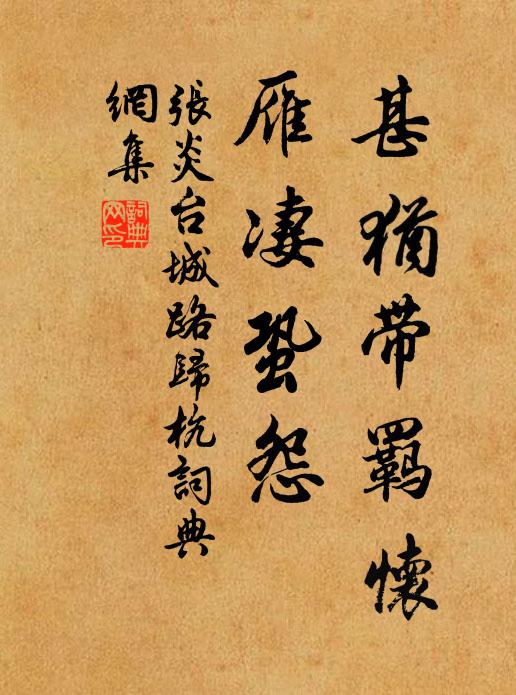 甚猶帶羈懷
雁凄蛩怨
張炎台城路歸杭詞典
網集
詞典
网印